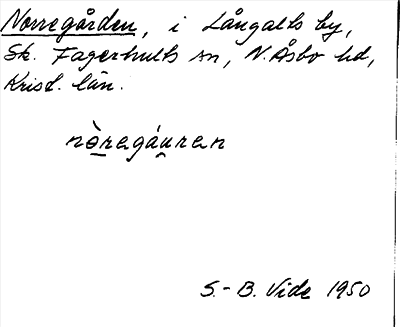 Norregården, i Långalts by,
Sk. Fagerhults sn, N. Åsbo hd,
Krist. län.
nòregáuren
S.-B. Vide 1950